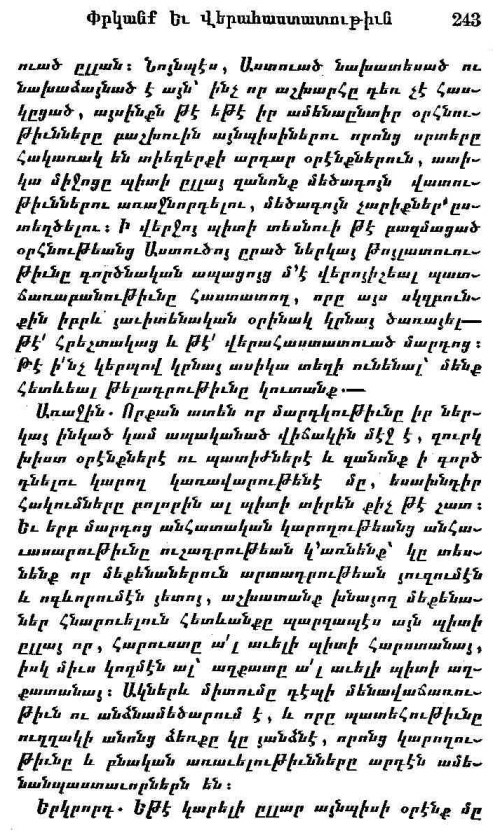 Փրկանք Եւ Վերահաստատութիւն 243
ուած ըլլան։ Նոյնպէս, Աստուած նախատեսած ու
նախաձայնած է այն՝ ինչ որ աշխարհը դեռ չէ հաս-
կըցած, այսինքն թէ եթէ իր ամենաընտիր օրհնու-
թիւնները բաշխուին այնպիսիներու որոնց սրտերը
հակառակ են տիեզերքի արդար օրէնքներուն, ատի-
կա միջոցը պիտի ըլլայ զանոնք մեծագոյն վատու-
թիւններու առաջնորդելու, մեծագոյն չարիքներ՝ ըս-
տեղծելու։ Ի վերջոյ պիտի տեսնուի թէ բազմացած
օրհնութեանց Աստուծոյ ըրած ներկայ թոյլատուու-
թիւնը գործնական ապացոյց մ՚է վերոյիշեալ պատ-
ճառաբանութիւնը հաստատող, որը այս սկզբուն-
քին իբրև յաւիտենական օրինակ կրնայ ծառայել—
թէ՛ հրեշտակաց և թէ՛ վերահաստատուած մարդոց։
Թէ ի՛նչ կերպով կրնայ ասիկա տեղի ունենալ՝ մենք
հետևեալ թելադրութիւնը կուտանք.—
Առաջին. Որքան ատեն որ մարդկութիւնը իր ներ-
կայ ինկած կամ ապականած վիճակին մէջ է, զուրկ
խիստ օրէնքներէ ու պատիժներէ և զանոնք ի գործ
դնելու կարող կառավարութենէ մը, եսախնդիր
հակումները բոլորին ալ պիտի տիրեն քիչ թէ շատ։
Եւ երբ մարդոց անհատական կարողութեանց անհա-
ւասարութիւնը ուշադրութեան կ՚առնենք՝ կը տես-
նենք որ մեքենաներուն արտադրութեան յուզումէն
և ոգևորումէն յետոյ, աշխատանք խնայող մեքենա-
ներ հնարուելուն հետևանքը պարզապէս այն պիտի
ըլլայ որ, հարուստը ա՛լ աւելի պիտի հարստանայ,
իսկ միւս կողմէն ալ՝ աղքատը ա՛լ աւելի պիտի աղ-
քատանայ։ Ակներև միտումը դէպի մենավաճառու-
թիւն ու անձնամեծարում է, և որը պատեհութիւնը
ուղղակի անոնց ձեռքը կը յանձնէ, որոնց կարողու-
թիւնը և բնական առաւելութիւնները արդէն ամե-
նանպաստաւորներն են։
Երկրորդ. Եթէ կարելի ըլլար այնպիսի օրէնք մը